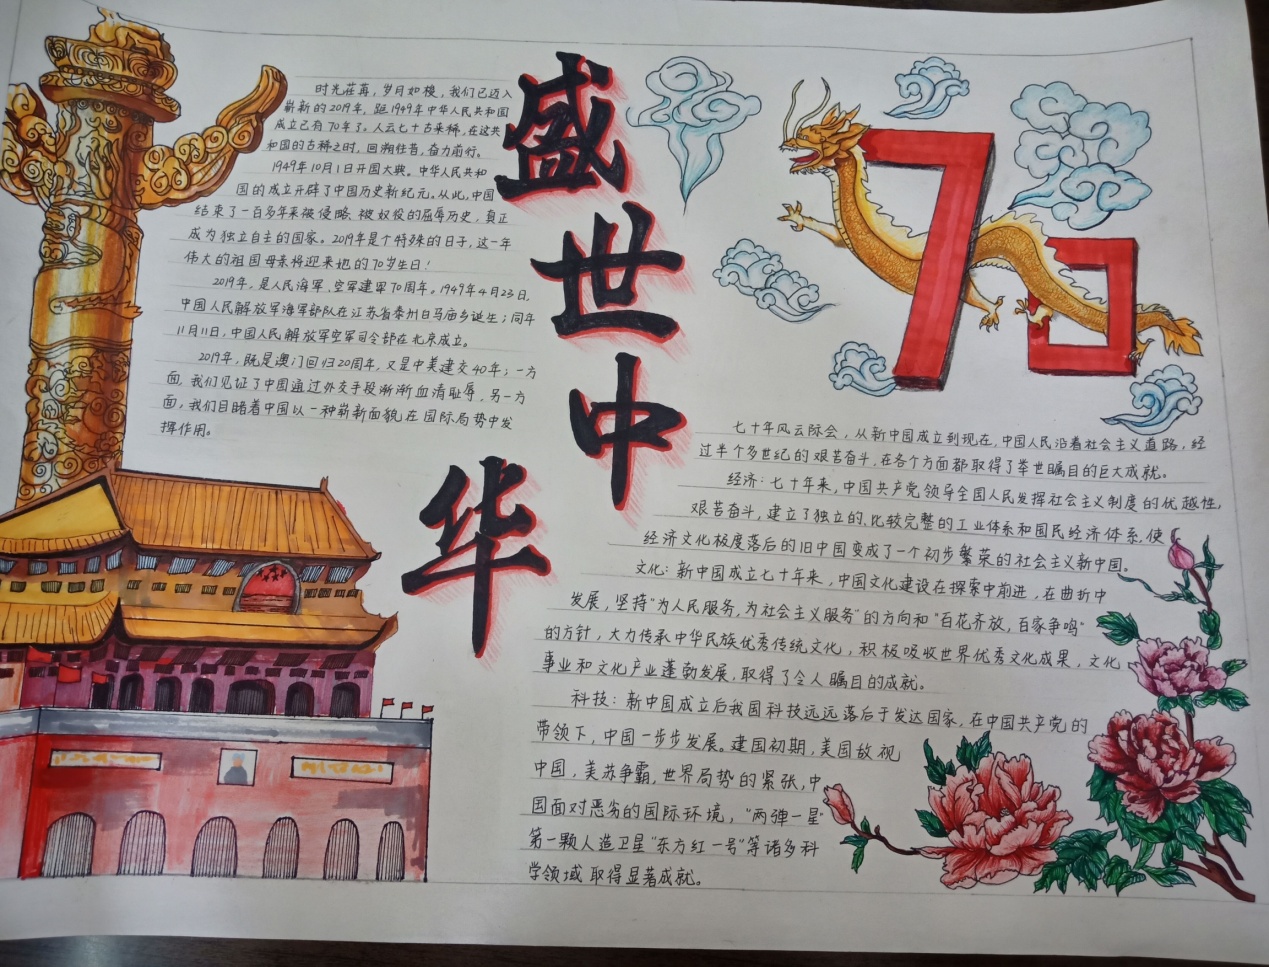 盛世中华
70
时光荏苒，岁月如梭，我们已迈入
崭新的2019年，距1949年中华人民共和国
成立已有70年了，人云七十古来稀，在这共
和国的古稀之时，回溯往昔，奋力前行。
1949年10月1日开国大典。中华人民共和
国的成立开辟了中国历史新纪元。从此，中国
结束了一百多年来被侵略、被奴役的屈辱历史，真正
成为独立自主的国家。2019年是个特殊的日子，这一年
伟大的祖国母亲将迎来她的70岁生日！
2019年，是人民海军、空军建军70周年。1949年4月23日，
中国人民解放军海军部队在江苏省泰州白马庙乡诞生；同年
11月11日，中国人民解放军空军司令部在北京成立。
2019年，既是澳门回归20周年，又是中美建交40年；一方
面，我们见证了中国通过外交手段渐渐血清耻辱，另一方
面，我们目睹着中国以一种崭新面貌，在国际局势中发
挥作用。
七十年风云际会，从新中国成立到现在，中国人民沿着社会主义道路，经
过半个多世纪的艰苦奋斗，在各个方面都取得了举世瞩目的巨大成就。
经济：七十年来，中国共产党领导全国人民发挥社会主义制度的优越性，
艰苦奋斗，建立了独立的、比较完整的工业体系和国民经济体系，使
经济文化极度落后的旧中国变成了一个初步繁荣的社会主义新中国。
文化：新中国成立七十年来，中国文化建设在探索中前进，在曲折中
发展，坚持“为人民服务，为社会主义服务”的方向和“百花齐放，百家争鸣”
的方针，大力传承中华民族优秀传统文化，积极吸收世界优秀文化成果，文化
事业和文化产业蓬勃发展，取得了令人瞩目的成就。
科技：新中国成立后我国科技远远落后于发达国家，在中国共产党的
带领下，中国一步步发展。建国初期，美国敌视
中国，美苏争霸，世界局势的紧张，中
国面对恶劣的国际环境，“两弹一星”
第一颗人造卫星“东方红一号”等诸多科
学领域取得显著成就。